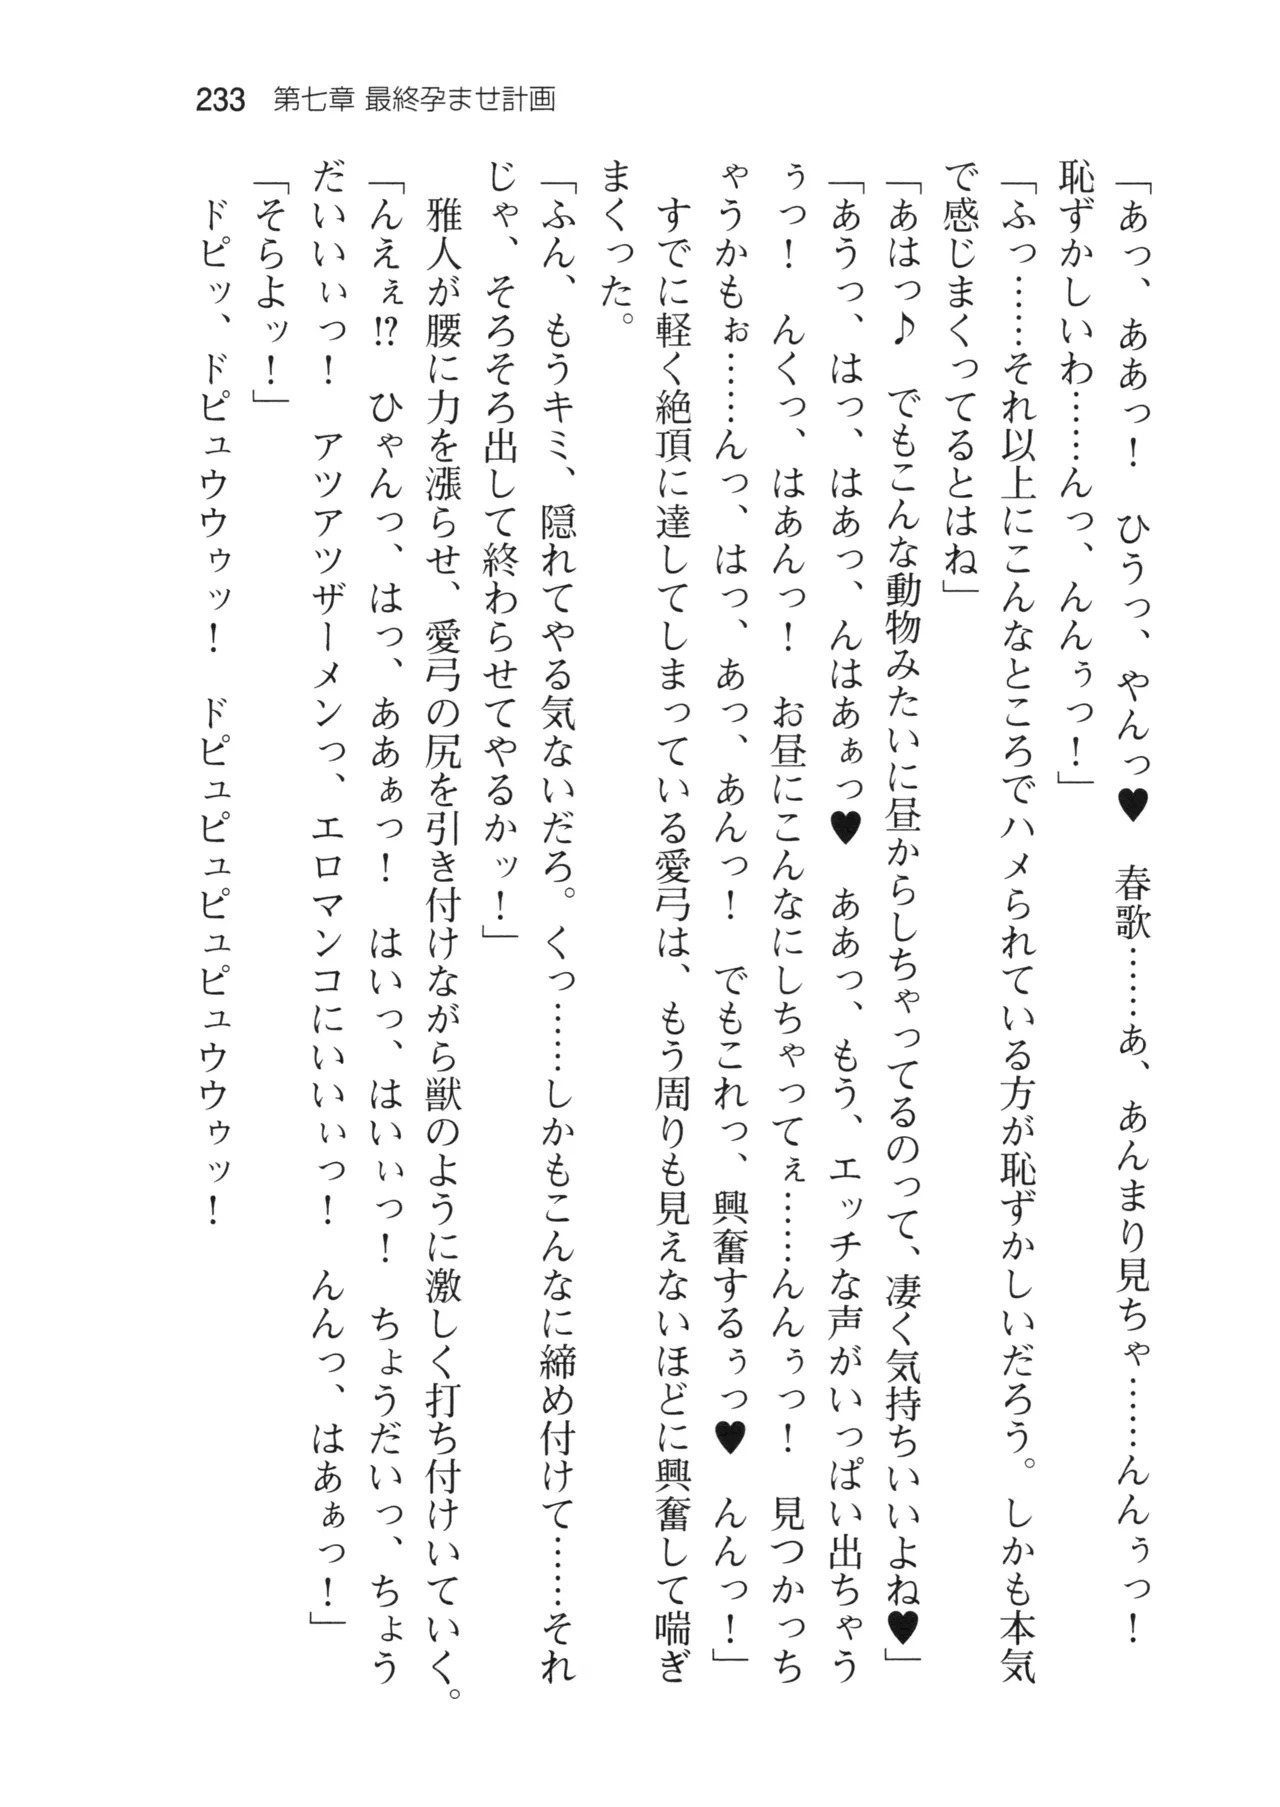 233　第七章 最終孕ませ計画
「あっ、ああっ！　ひうっ、やんっ♥　春歌……あ、あんまり見ちゃ……んんぅっ！
恥ずかしいわ……んっ、んんぅっ！」
「ふっ……それ以上にこんなところでハメられている方が恥ずかしいだろう。しかも本気
で感じまくってるとはね」
「あはっ♪　でもこんな動物みたいに昼からしちゃってるのって、凄く気持ちいいよね♥」
「あうっ、はっ、はあっ、んはあぁっ♥　ああっ、もう、エッチな声がいっぱい出ちゃう
ぅっ！　んくっ、はあんっ！　お昼にこんなにしちゃってぇ……んんぅっ！　見つかっち
ゃうかもぉ……んっ、はっ、あっ、あんっ！　でもこれっ、興奮するぅっ♥　んんっ！」
　すでに軽く絶頂に達してしまっている愛弓は、もう周りも見えないほどに興奮して喘ぎ
まくった。
「ふん、もうキミ、隠れてやる気ないだろ。くっ……しかもこんなに締め付けて……それ
じゃ、そろそろ出して終わらせてやるかッ！」
　雅人が腰に力を漲らせ、愛弓の尻を引き付けながら獣のように激しく打ち付けいていく。
「んえぇ!?　ひゃんっ、はっ、ああぁっ！　はいっ、はいぃっ！　ちょうだいっ、ちょう
だいいぃっ！　アツアツザーメンっ、エロマンコにいいぃっ！　んんっ、はあぁっ！」
「そらよッ！」
　ドピッ、ドピュウウゥッ！　ドピュピュピュピュウウゥッ！